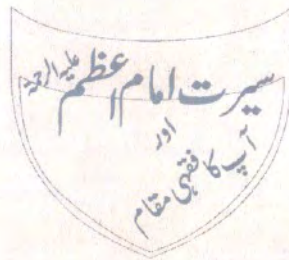 سیرت امام اعظم علیہ الرحمۃ
اور
آپ کا فقہی مقام